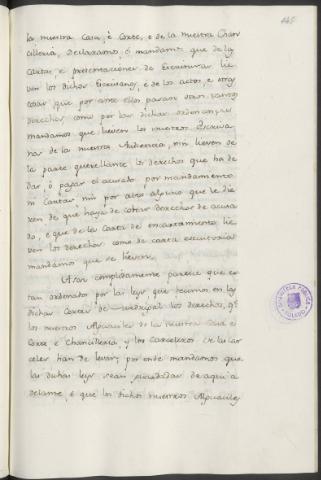 445
la nuestra Casa, è Corte, e de la nuestra Chan
cilleria, declaramos, ò mandamos que de las
Cartas, e presentaciones de Escrituras, lie
ven los dichos Escrivanos, e de los actos, e otras
cosas que por ante ellos pasaren otros tantos
derechos, como por las dichas ordenanzas
mandamos que lieven los nuestros Escriva
nos de la nuestra Audiencia, nin lieven de
la parte querellante los derechos que ha de
dar, ò pagar el acusado por mandamiento
ni Cantar nin por otro alguno que le die
ren de que haya de cobrar derechos de acusa
do, e que de la Carta de encartamiento lie
ven los derechos como de carta executorial
mandamos que se lieven.
Asaz complidamente parece que es
tan ordenado por las leyes que fecimos en las
dichas Cortes de Madrigal los derechos, qe.
los nuestros Alguaciles de la nuestra Casa è
Corte, e Chancilleria, y los Carceleros de las car
celes han de levar; por ende mandamos que
las dichas leyes sean guardadas de aqui a
delante, è que los dichos nuestros Alguaciles
BIBLIOTECA PUBLICA
TOLEDO